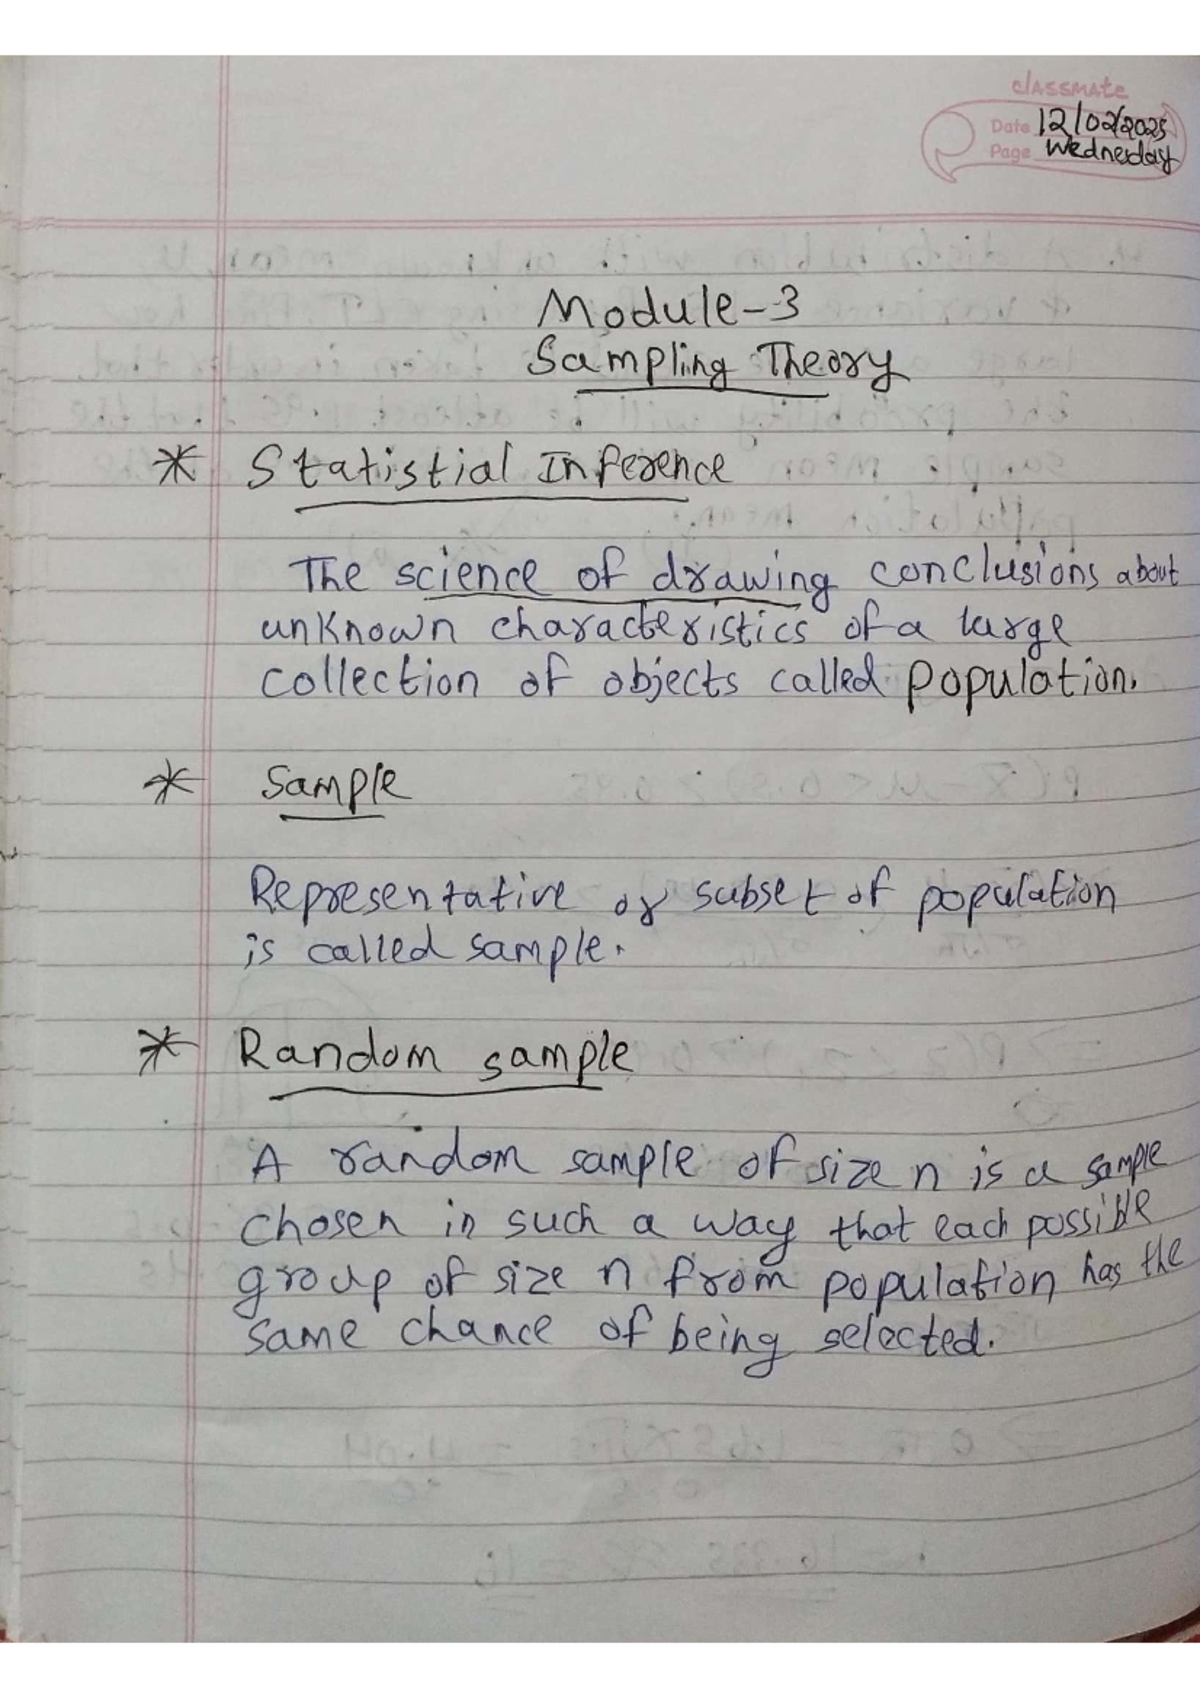 classmate
Date 12/02/2025
Page Wednesday
Module-3
Sampling Theory
* Statistial Inference
The science of drawing conclusions about
unknown characteristics of a large
collection of objects called population.
* Sample
Representative or subset of population
is called sample.
* Random sample
A random sample of size n is a sample
chosen in such a way that each possible
group of size n from population has the
same chance of being selected.